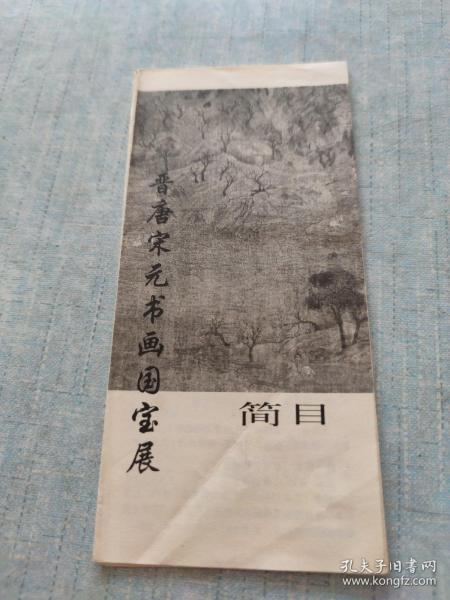 晋唐宋元书画国宝展
简目
孔夫子旧书网
www.kongfz.com